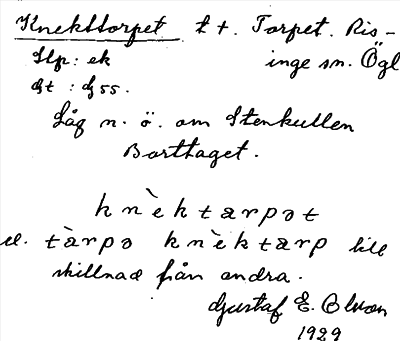 Knekttorpet l t. Torpet. Ris-
Stp: ek inge sn. Ögl
Gt : G 55.
Låg n. ö. om Stenkullen
Borttaget.
knèktarpət
el. tàrpə knèktarp till
skillnad från andra.
Gustaf E. Olsson
1929